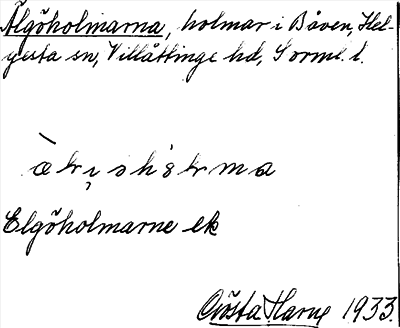 Älgöholmarna, holmar i Båven, Hel-
gesta sn, Villåttinge hd, Sörml. l.
Elgöholmarne ek
Gösta Harne 1933.